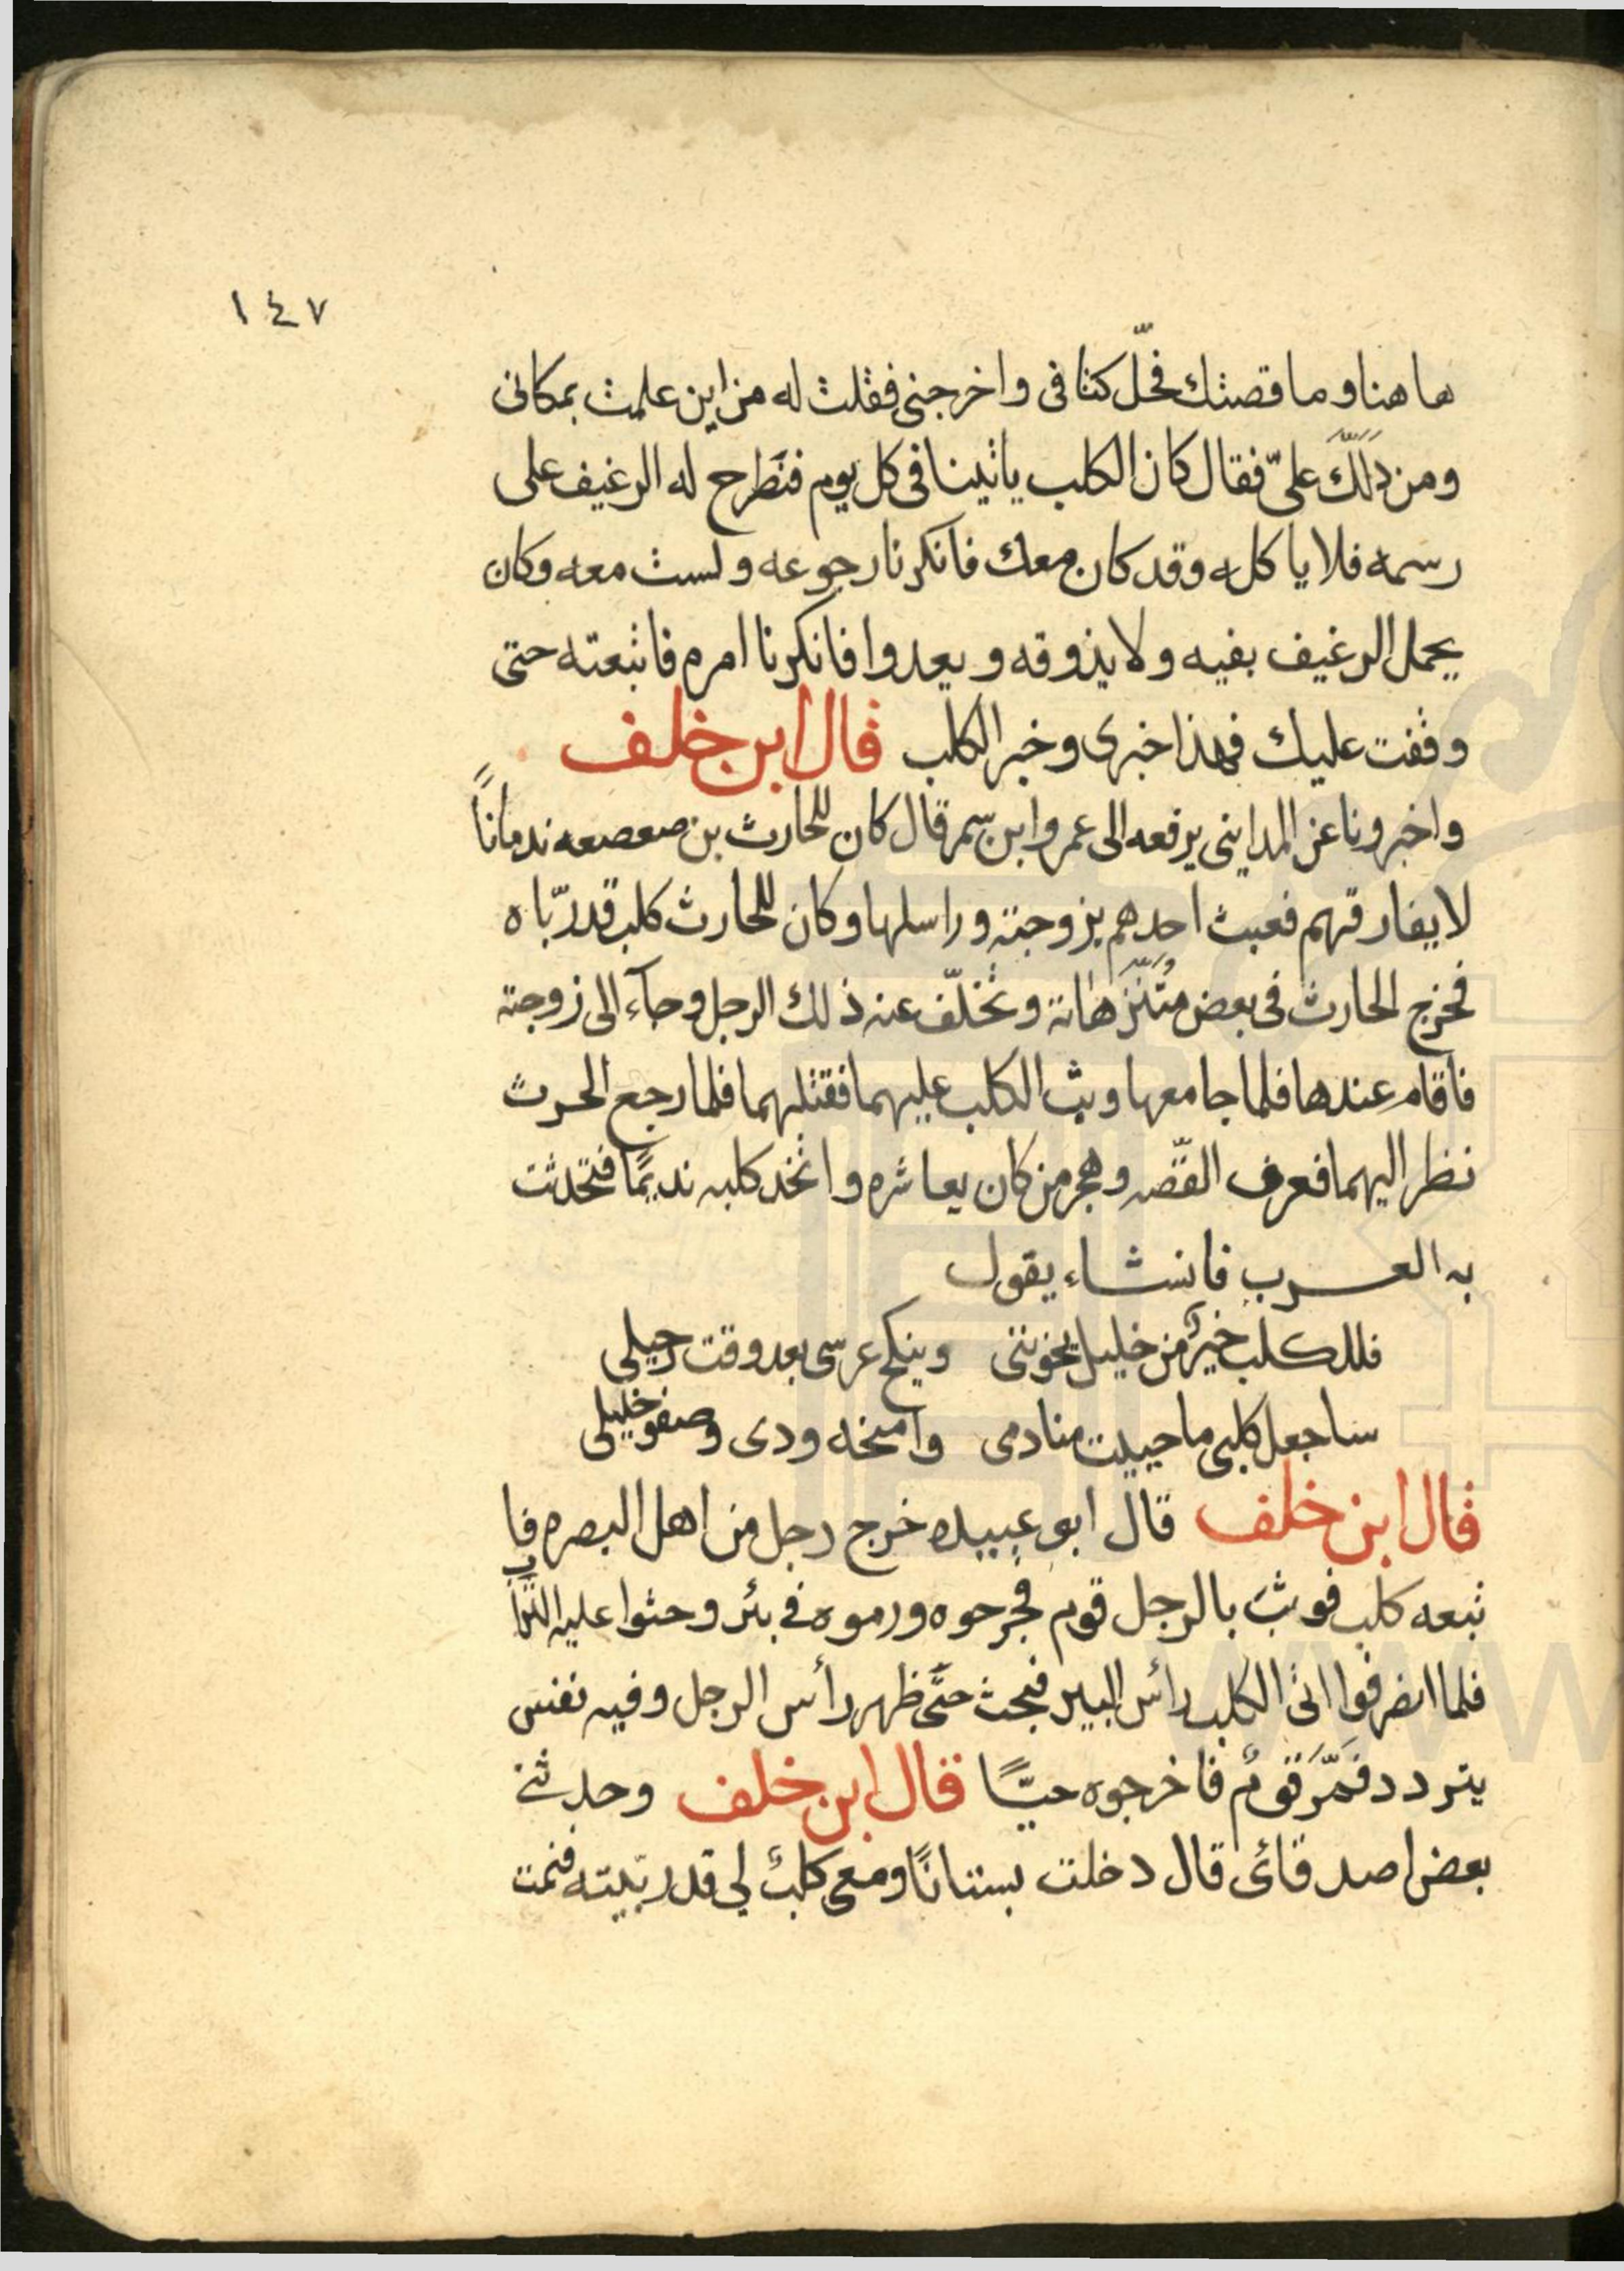 ١٤٧
ها هنا وما قصتك فحلّ كتافى واخرجنى فقلت له من اين علمت بمكانى
ومن دَلَّكَ علىّ فقال كان الكلب ياتينا فى كل يوم فنطرح له الرغيف على
رسمه فلا ياكله وقد كان معك فانكرنا رجوعه ولست معه وكان
يحمل الرغيف بفيه ولا يذوقه ويعدوا فانكرنا امره فاتبعته حتى
وقفت عليك فهذا خبرى وخبر الكلب قال ابن خلف
واخبرونا عن المداينى يرفعه الى عمرو ابن سمر قال كان للحارث بن صعصعه ندماناً
لا يفارقهم فعبث احدهم بزوجته وراسلها وكان للحارث كلب قد ربّاه
فخرج الحارث فى بعض مُتَنَزّهاته وتخلّف عنه ذلك الرجل وجآء الى زوجته
فاقام عندها فلما جامعها وثب الكلب عليهما فقتلهما فلما رجع الحرث
نظر اليهما فعرف القصّه وهجر من كان يعاشره واتخذ كلبه نديمًا فتحدثت
به العرب فانشاء يقول
فللكلب خيرٌ من خليل يخوننى وينكح عرسى بعد وقت رحيلى
ساجعل كلبى ما حييت منادمى وامنحه ودى وصفو خليلى
قال ابن خلف قال ابو عبيده خرج رجل من اهل البصره فا
تبعه كلب فوثب بالرجل قوم فجرحوه ورموه فى بئر وحثوا عليه التراب
فلما انصرفوا اتى الكلب رأس البير فبحث حتّى ظهر رأس الرجل وفيه نفس
يتردد فَمَرَّ قومٌ فاخرجوه حيًّا قال ابن خلف وحدثنى
بعض اصدقائى قال دخلت بستانًا ومعى كلبٌ لي قد ربّيته فنمت